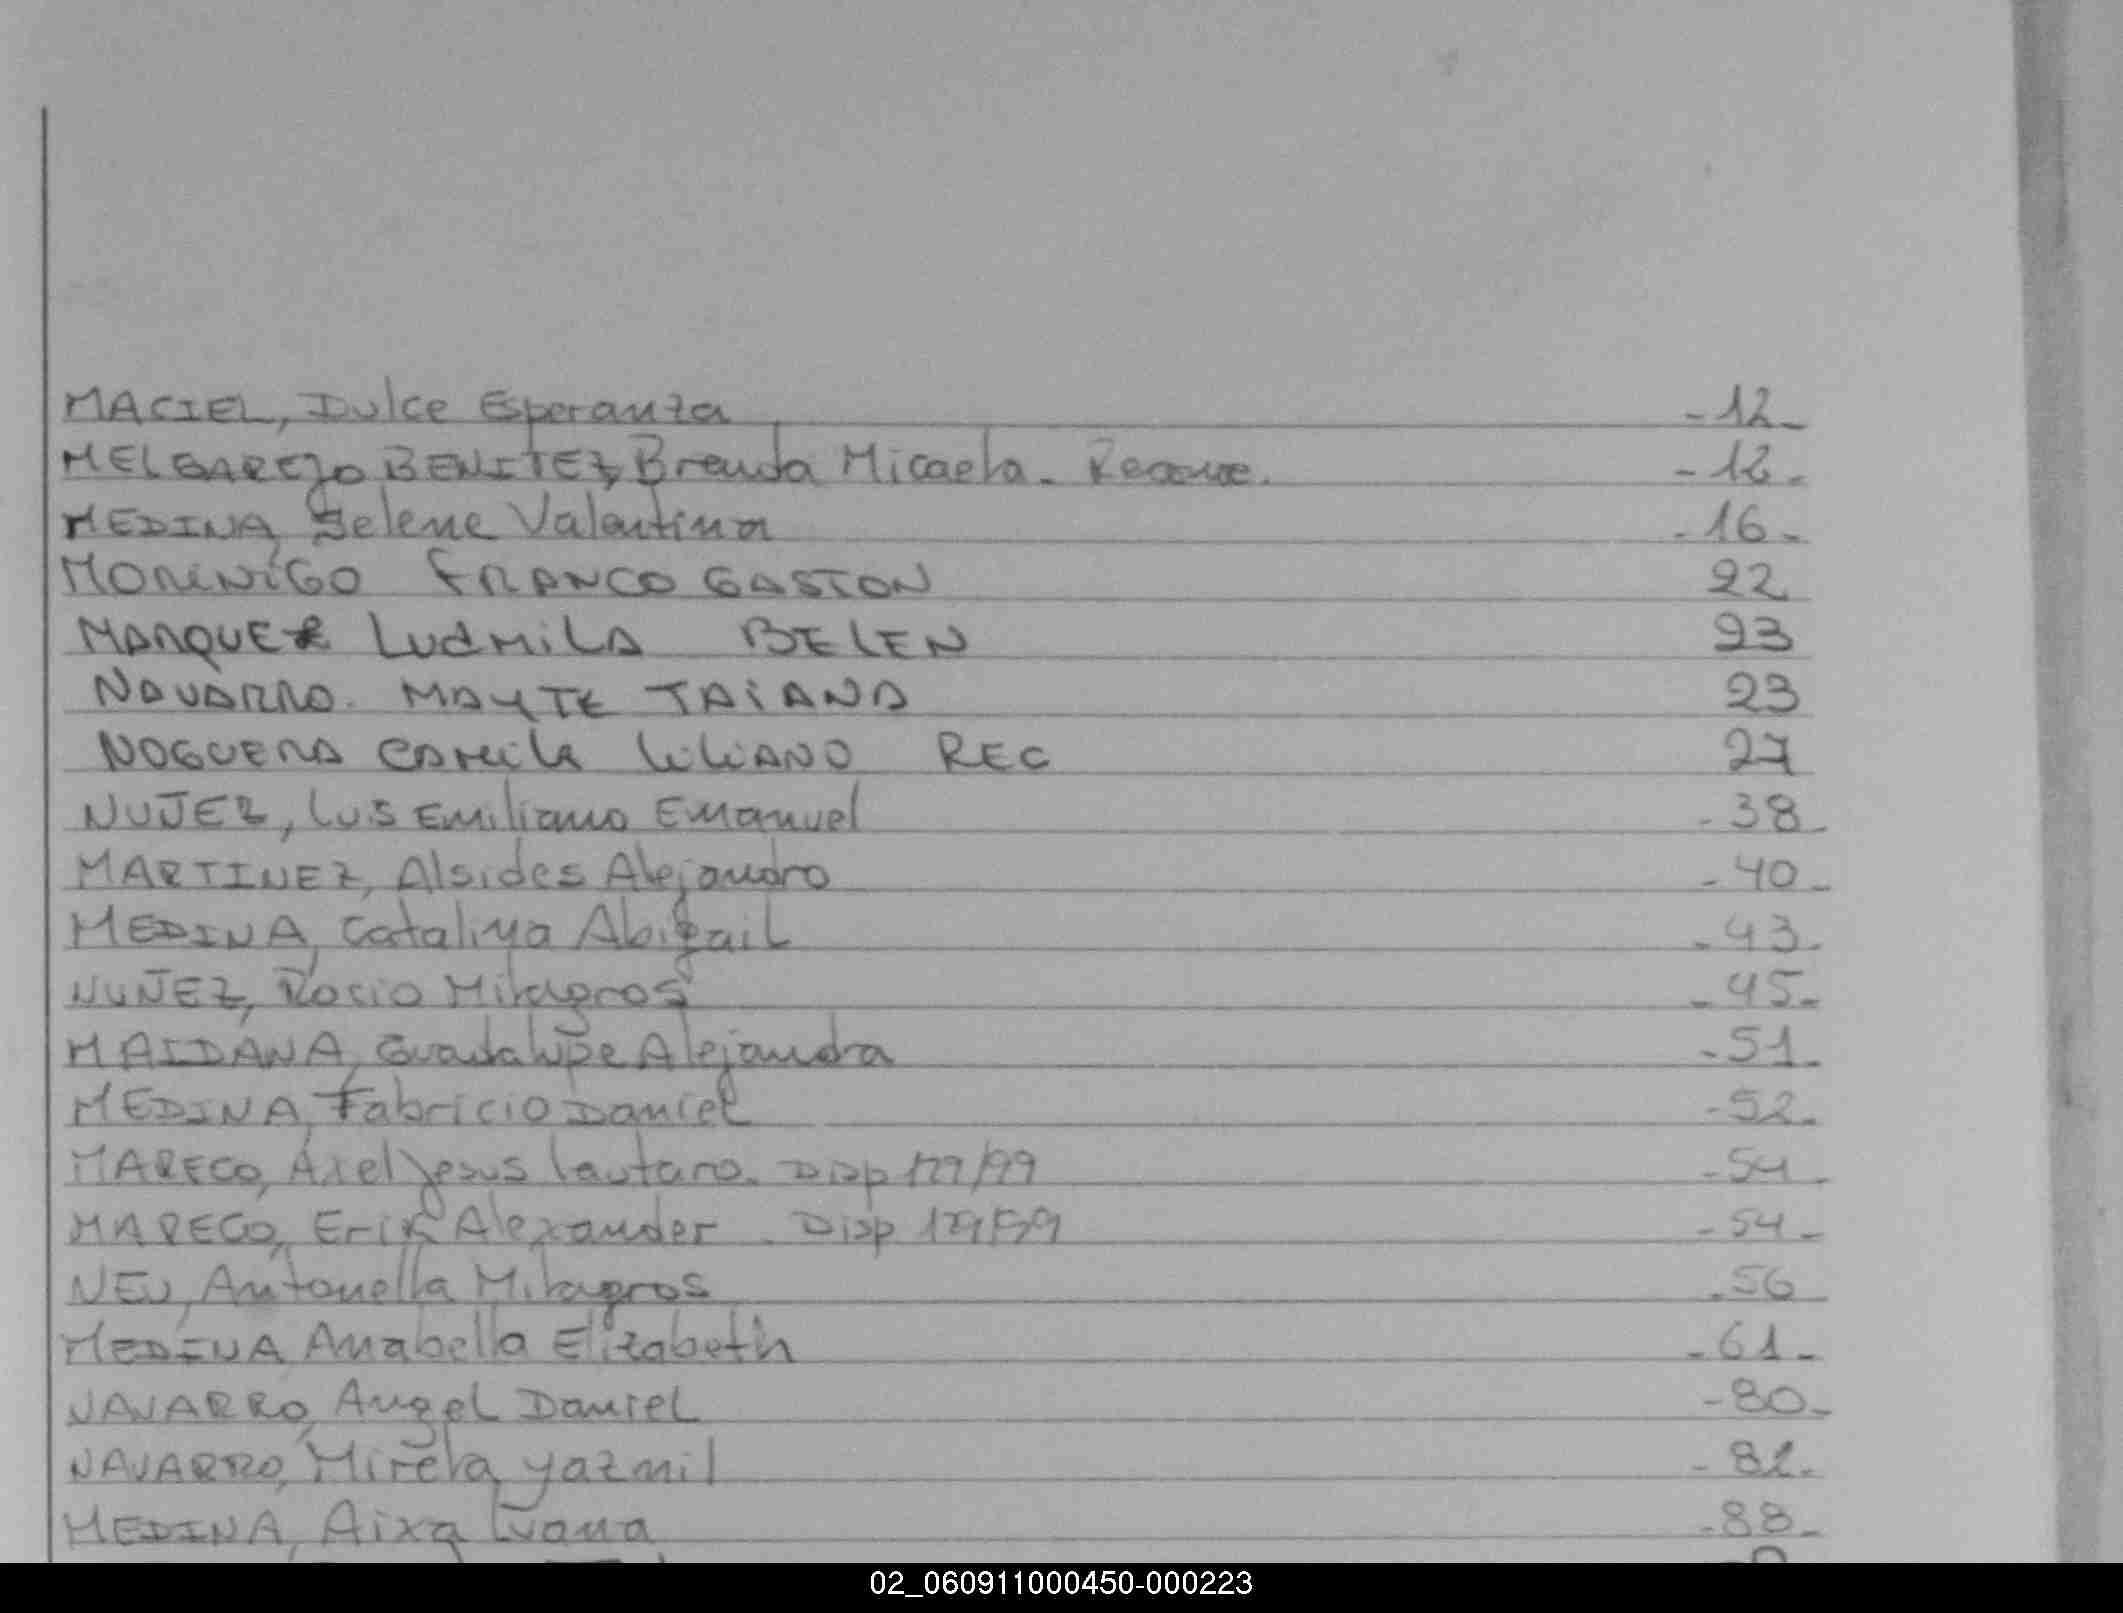 MACIEL, Dulce Esperanza -12-
MELGAREJO BENITEZ, Brenda Micaela - -12-
MEDINA, Selene Valentina -16-
MORINIGO FRANCO GASTON 22
MARQUEZ LUDMILA BELEN 23
NAVARRO. MAYTE TAIANA 23
NOGUERA CAMILA LILIANO REC 27
NUÑEZ, Luis Emiliano Emanuel -38-
MARTINEZ, Alsides Alejandro -40-
MEDINA, Catalina Abigail -43-
NUÑEZ, Rocio Milagros -45-
MAIDANA, Guadalupe Alejandra -51-
MEDINA, Fabricio Daniel -52-
MARECO, Axel Jesus Lautaro. Disp 179/99 -54-
MARECO, Erik Alexander. Disp 179/99 -54-
NEU, Antonella Milagros -56
MEDINA Anabella Elizabeth -61-
NAVARRO, Angel Daniel -80-
NAVARRO, Mirela yazmil -81-
MEDINA, Aixa Ivana -88-
02_060911000450-000223